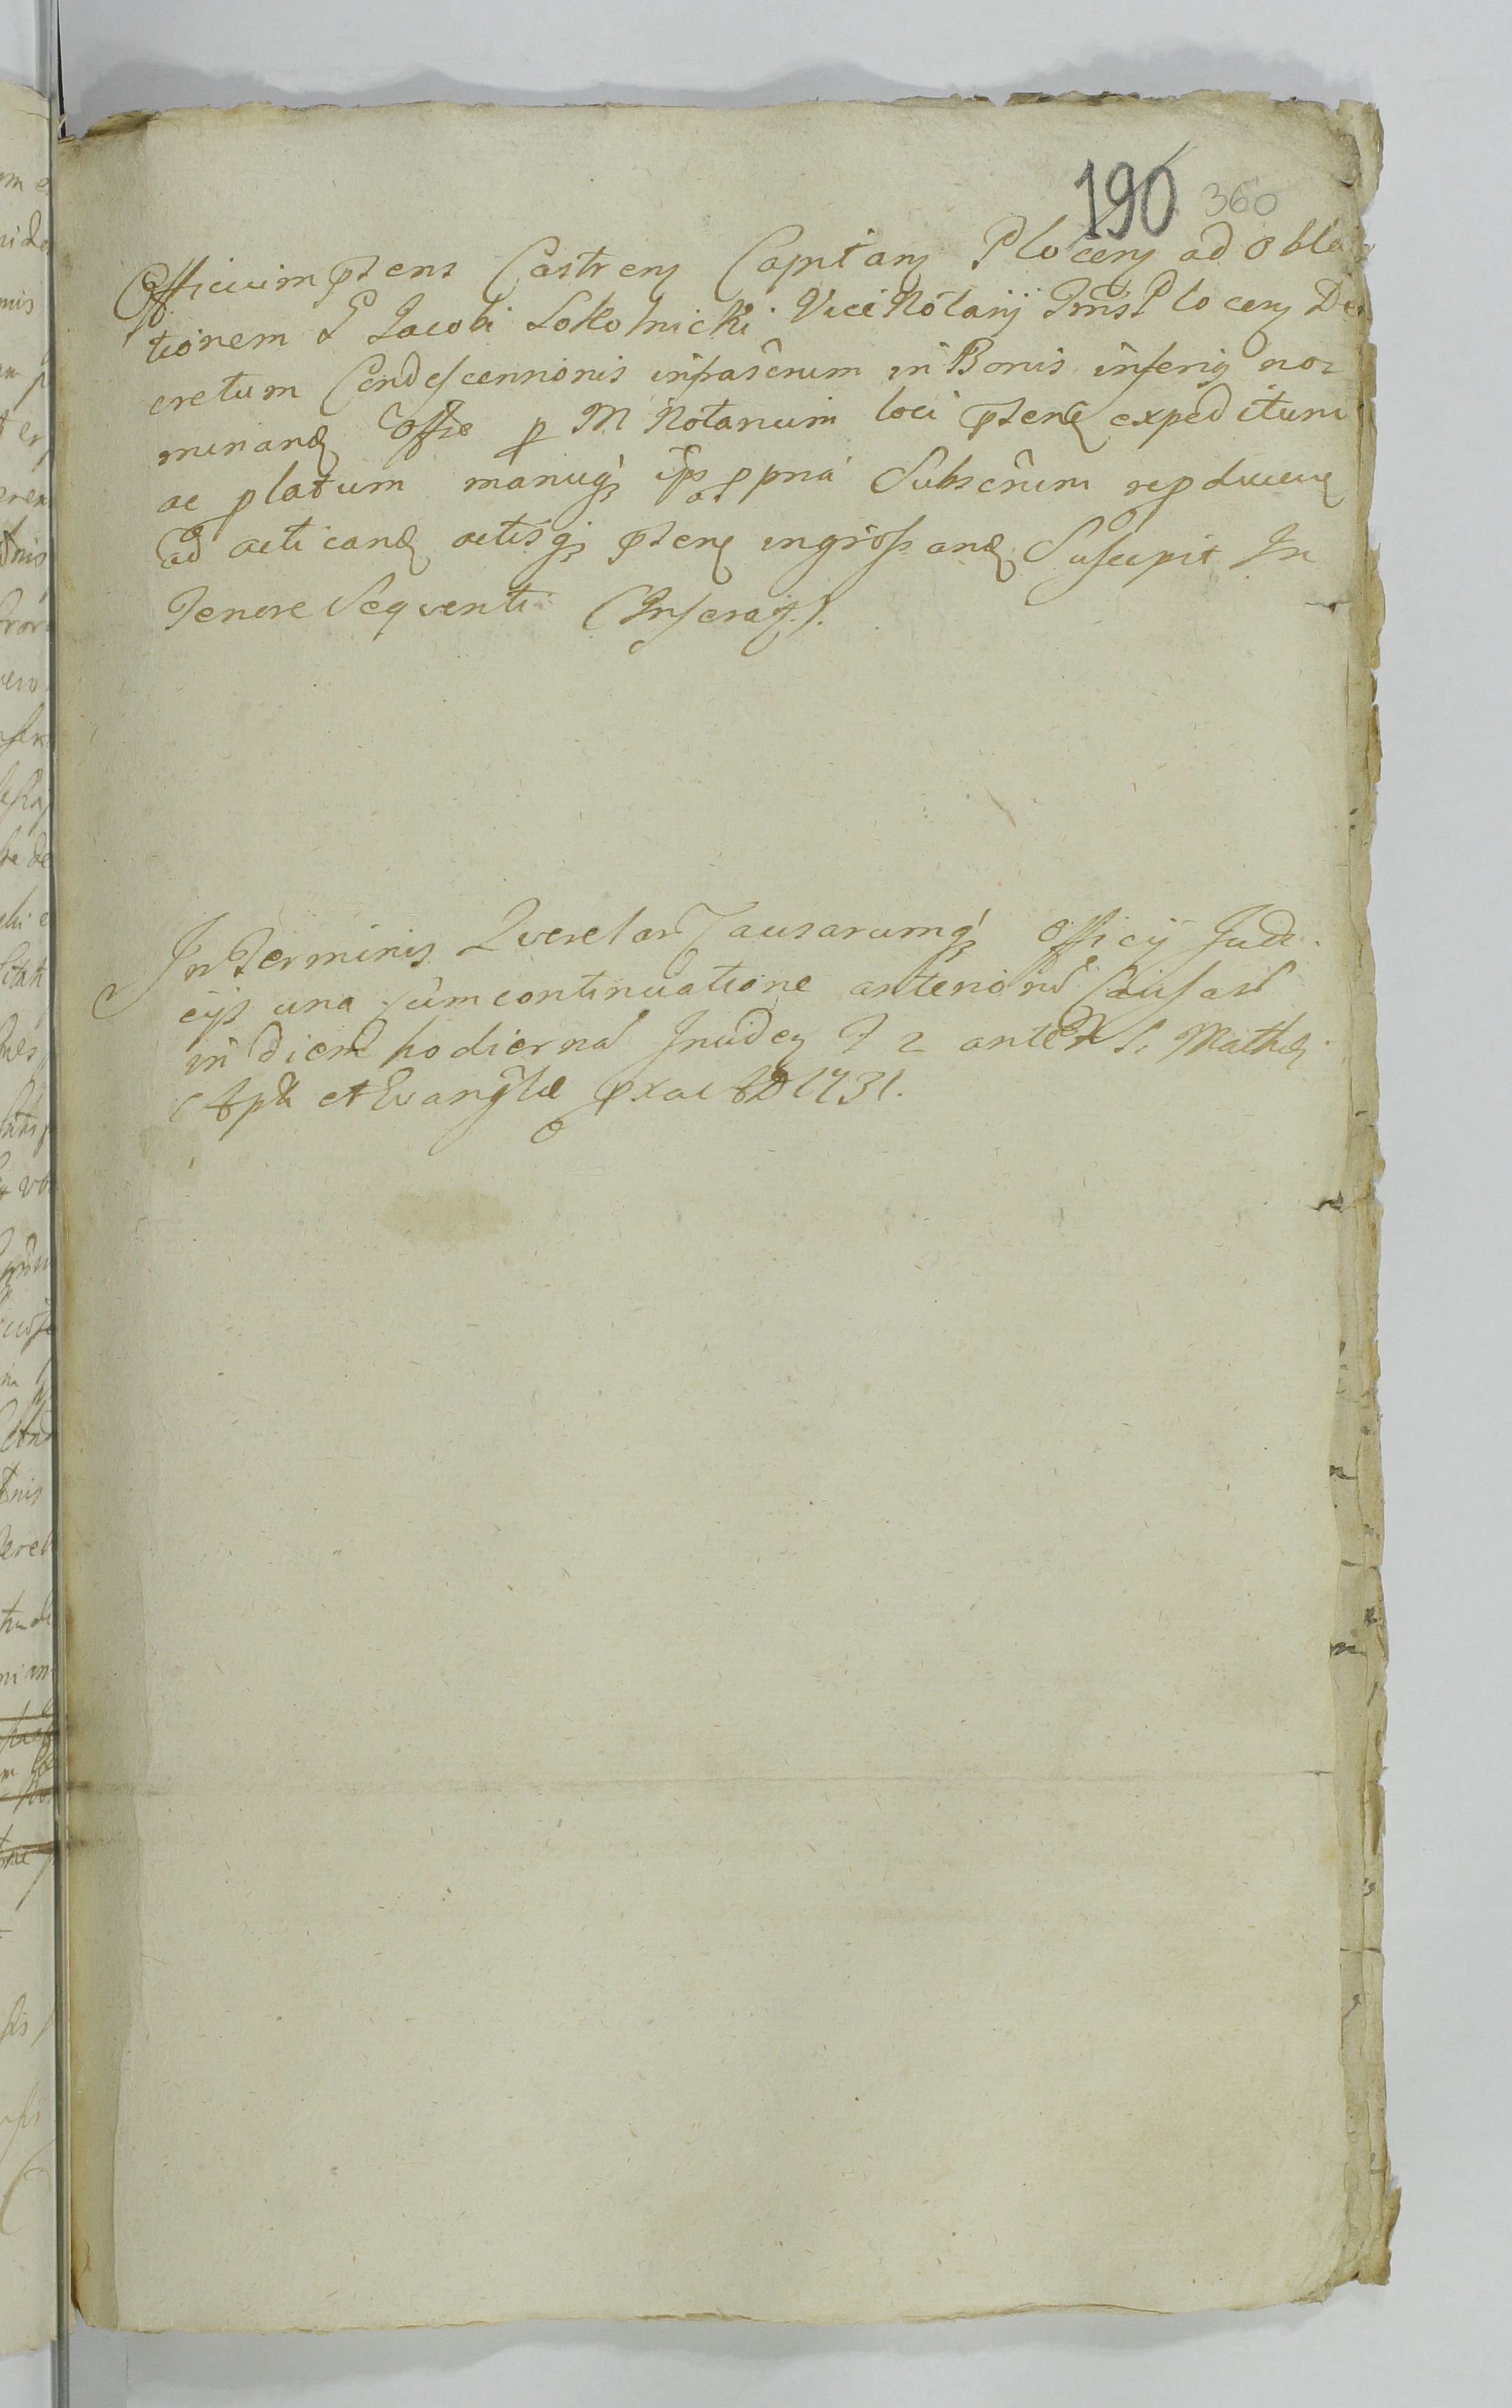 190 360
Officium pntens Castren Capitan Plocen ad Obla
tionem G Iacobi Sokolnicki Vice Notarij Trris Plocen De
cretum Condescensionis infrascrum in Bonis inferig no=
minand Offse p M Notarium loci pnten expeditum
ac platum manuq ips ppria Subscrum
ad acticand actisq pnten ingrossand Suscepit In
Tenore Seqventi (Inserat.).
In Terminis Qverelar Causarumq Officij Judi
cijs una cum continuatione anteriord Causard
in diem hodierna Incideñ F 2 ante F S. Mathei
Apli et Evanglæ pxae AD 1731.